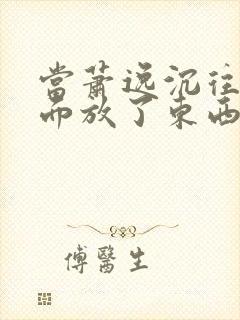 當蕭逸沉往
而放了東西
傅醫生